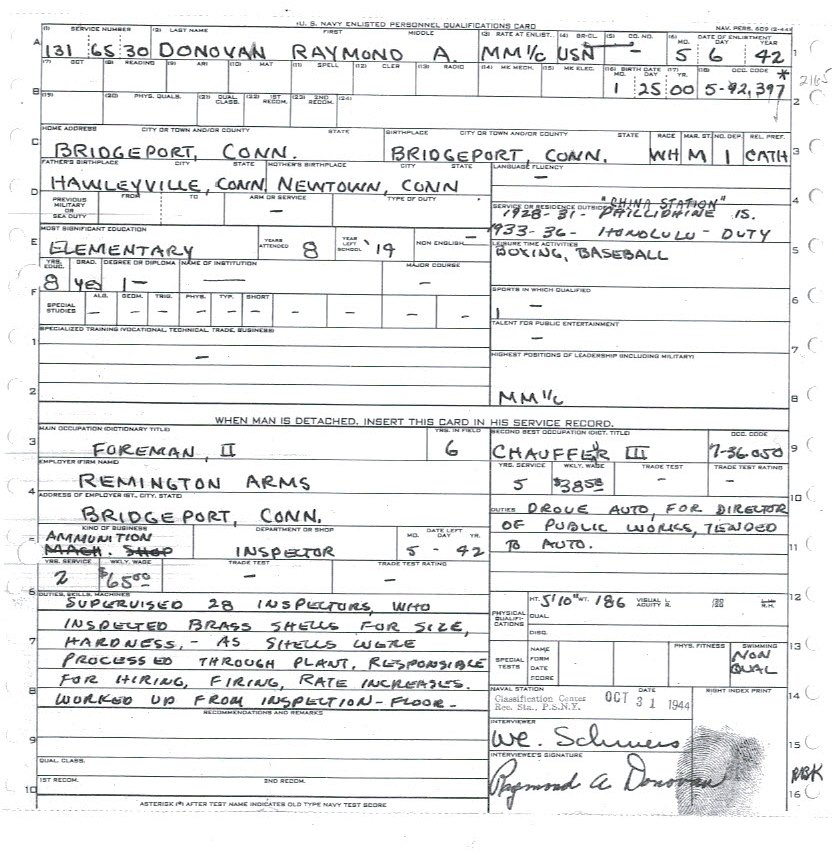 U. S. NAVY ENLISTED PERSONNEL QUALIFICATIONS CARD
NAV. PERS. 609 (2-44)
(1) SERVICE NUMBER (2) LAST NAME FIRST MIDDLE (3) RATE AT ENLIST. (4) BR-CL. (5) CO. NO. (6) DATE OF ENLISTMENT MO. DAY YEAR
A 131 65 30 DONOVAN RAYMOND A. MM1/c USN 5 6 42 1
(7) GCT (8) READING (9) ARI (10) MAT (11) SPELL (12) CLER (13) RADIO (14) MK MECH. (15) MK ELEC. (16) BIRTH DATE MO. DAY (17) YR. (18) OCC. CODE *
B 1 25 00 5-92,397 2165
(19) (20) PHYS. QUALS. (21) QUAL. CLASS. (22) 1ST RECOM. (23) 2ND RECOM. (24) 2
HOME ADDRESS CITY OR TOWN AND/OR COUNTY STATE BIRTHPLACE CITY OR TOWN AND/OR COUNTY STATE RACE MAR. ST. NO. DEP. REL. PREF.
C BRIDGEPORT, CONN. BRIDGEPORT, CONN. WH M 1 CATH 3
FATHER'S BIRTHPLACE CITY STATE MOTHER'S BIRTHPLACE CITY STATE LANGUAGE FLUENCY
D HAWLEYVILLE, CONN NEWTOWN, CONN - 4
PREVIOUS MILITARY OR SEA DUTY FROM TO ARM OR SERVICE TYPE OF DUTY
-
SERVICE OR RESIDENCE OUTSIDE "CHINA STATION"
1928-31- PHILLIPHINE IS.
1933-36- HONOLULU-DUTY
MOST SIGNIFICANT EDUCATION YEARS ATTENDED YEAR LEFT SCHOOL NON ENGLISH
E ELEMENTARY 8 '19 - 5
LEISURE TIME ACTIVITIES
BOXING, BASEBALL
YRS. EDUC. GRAD. DEGREE OR DIPLOMA NAME OF INSTITUTION MAJOR COURSE
8 yes 1- - -
F SPECIAL STUDIES ALG. GEOM. TRIG. PHYS. TYP. SHORT
- - - - - - - - - -
SPORTS IN WHICH QUALIFIED 6
-
1
SPECIALIZED TRAINING (VOCATIONAL, TECHNICAL, TRADE, BUSINESS)
1 -
TALENT FOR PUBLIC ENTERTAINMENT
- 7
HIGHEST POSITIONS OF LEADERSHIP (INCLUDING MILITARY)
2 MM1/c 8
WHEN MAN IS DETACHED, INSERT THIS CARD IN HIS SERVICE RECORD.
MAIN OCCUPATION (DICTIONARY TITLE) YRS. IN FIELD SECOND BEST OCCUPATION (DICT. TITLE) OCC. CODE
3 FOREMAN, II 6 CHAUFFER III 7-36-050 9
EMPLOYER (FIRM NAME) YRS. SERVICE WKLY. WAGE TRADE TEST TRADE TEST RATING
4 REMINGTON ARMS 5 $38.50 - - 10
ADDRESS OF EMPLOYER (ST., CITY, STATE)
BRIDGEPORT, CONN.
DUTIES DROVE AUTO, FOR DIRECTOR
OF PUBLIC WORKS, TENDED
TO AUTO. 11
KIND OF BUSINESS DEPARTMENT OR SHOP DATE LEFT MO. DAY YR.
AMMUNITION
MACH. SHOP INSPECTOR 5 - 42
YRS. SERVICE WKLY. WAGE TRADE TEST TRADE TEST RATING
2 $65.00 - -
6 DUTIES, SKILLS, MACHINES
SUPERVISED 28 INSPECTORS, WHO
INSPECTED BRASS SHELLS FOR SIZE,
7 HARDNESS, - AS SHELLS WERE
PROCESSED THROUGH PLANT, RESPONSIBLE
8 FOR HIRING, FIRING, RATE INCREASES.
WORKED UP FROM INSPECTION-FLOOR-
PHYSICAL QUALIFICATIONS HT. 5'10" WT. 186 VISUAL ACUITY L. R. 12
QUAL.
DISQ.
SPECIAL TESTS NAME FORM DATE SCORE PHYS. FITNESS SWIMMING 13
NON
QUAL
NAVAL STATION DATE RIGHT INDEX PRINT
Classification Center
Rec. Sta., P.S.N.Y. OCT 31 1944 14
RECOMMENDATIONS AND REMARKS
9
INTERVIEWER
15
QUAL. CLASS.
INTERVIEWEE'S SIGNATURE
Raymond A Donovan
RBK
1ST RECOM. 2ND RECOM.
10 16
ASTERISK (*) AFTER TEST NAME INDICATES OLD TYPE NAVY TEST SCORE